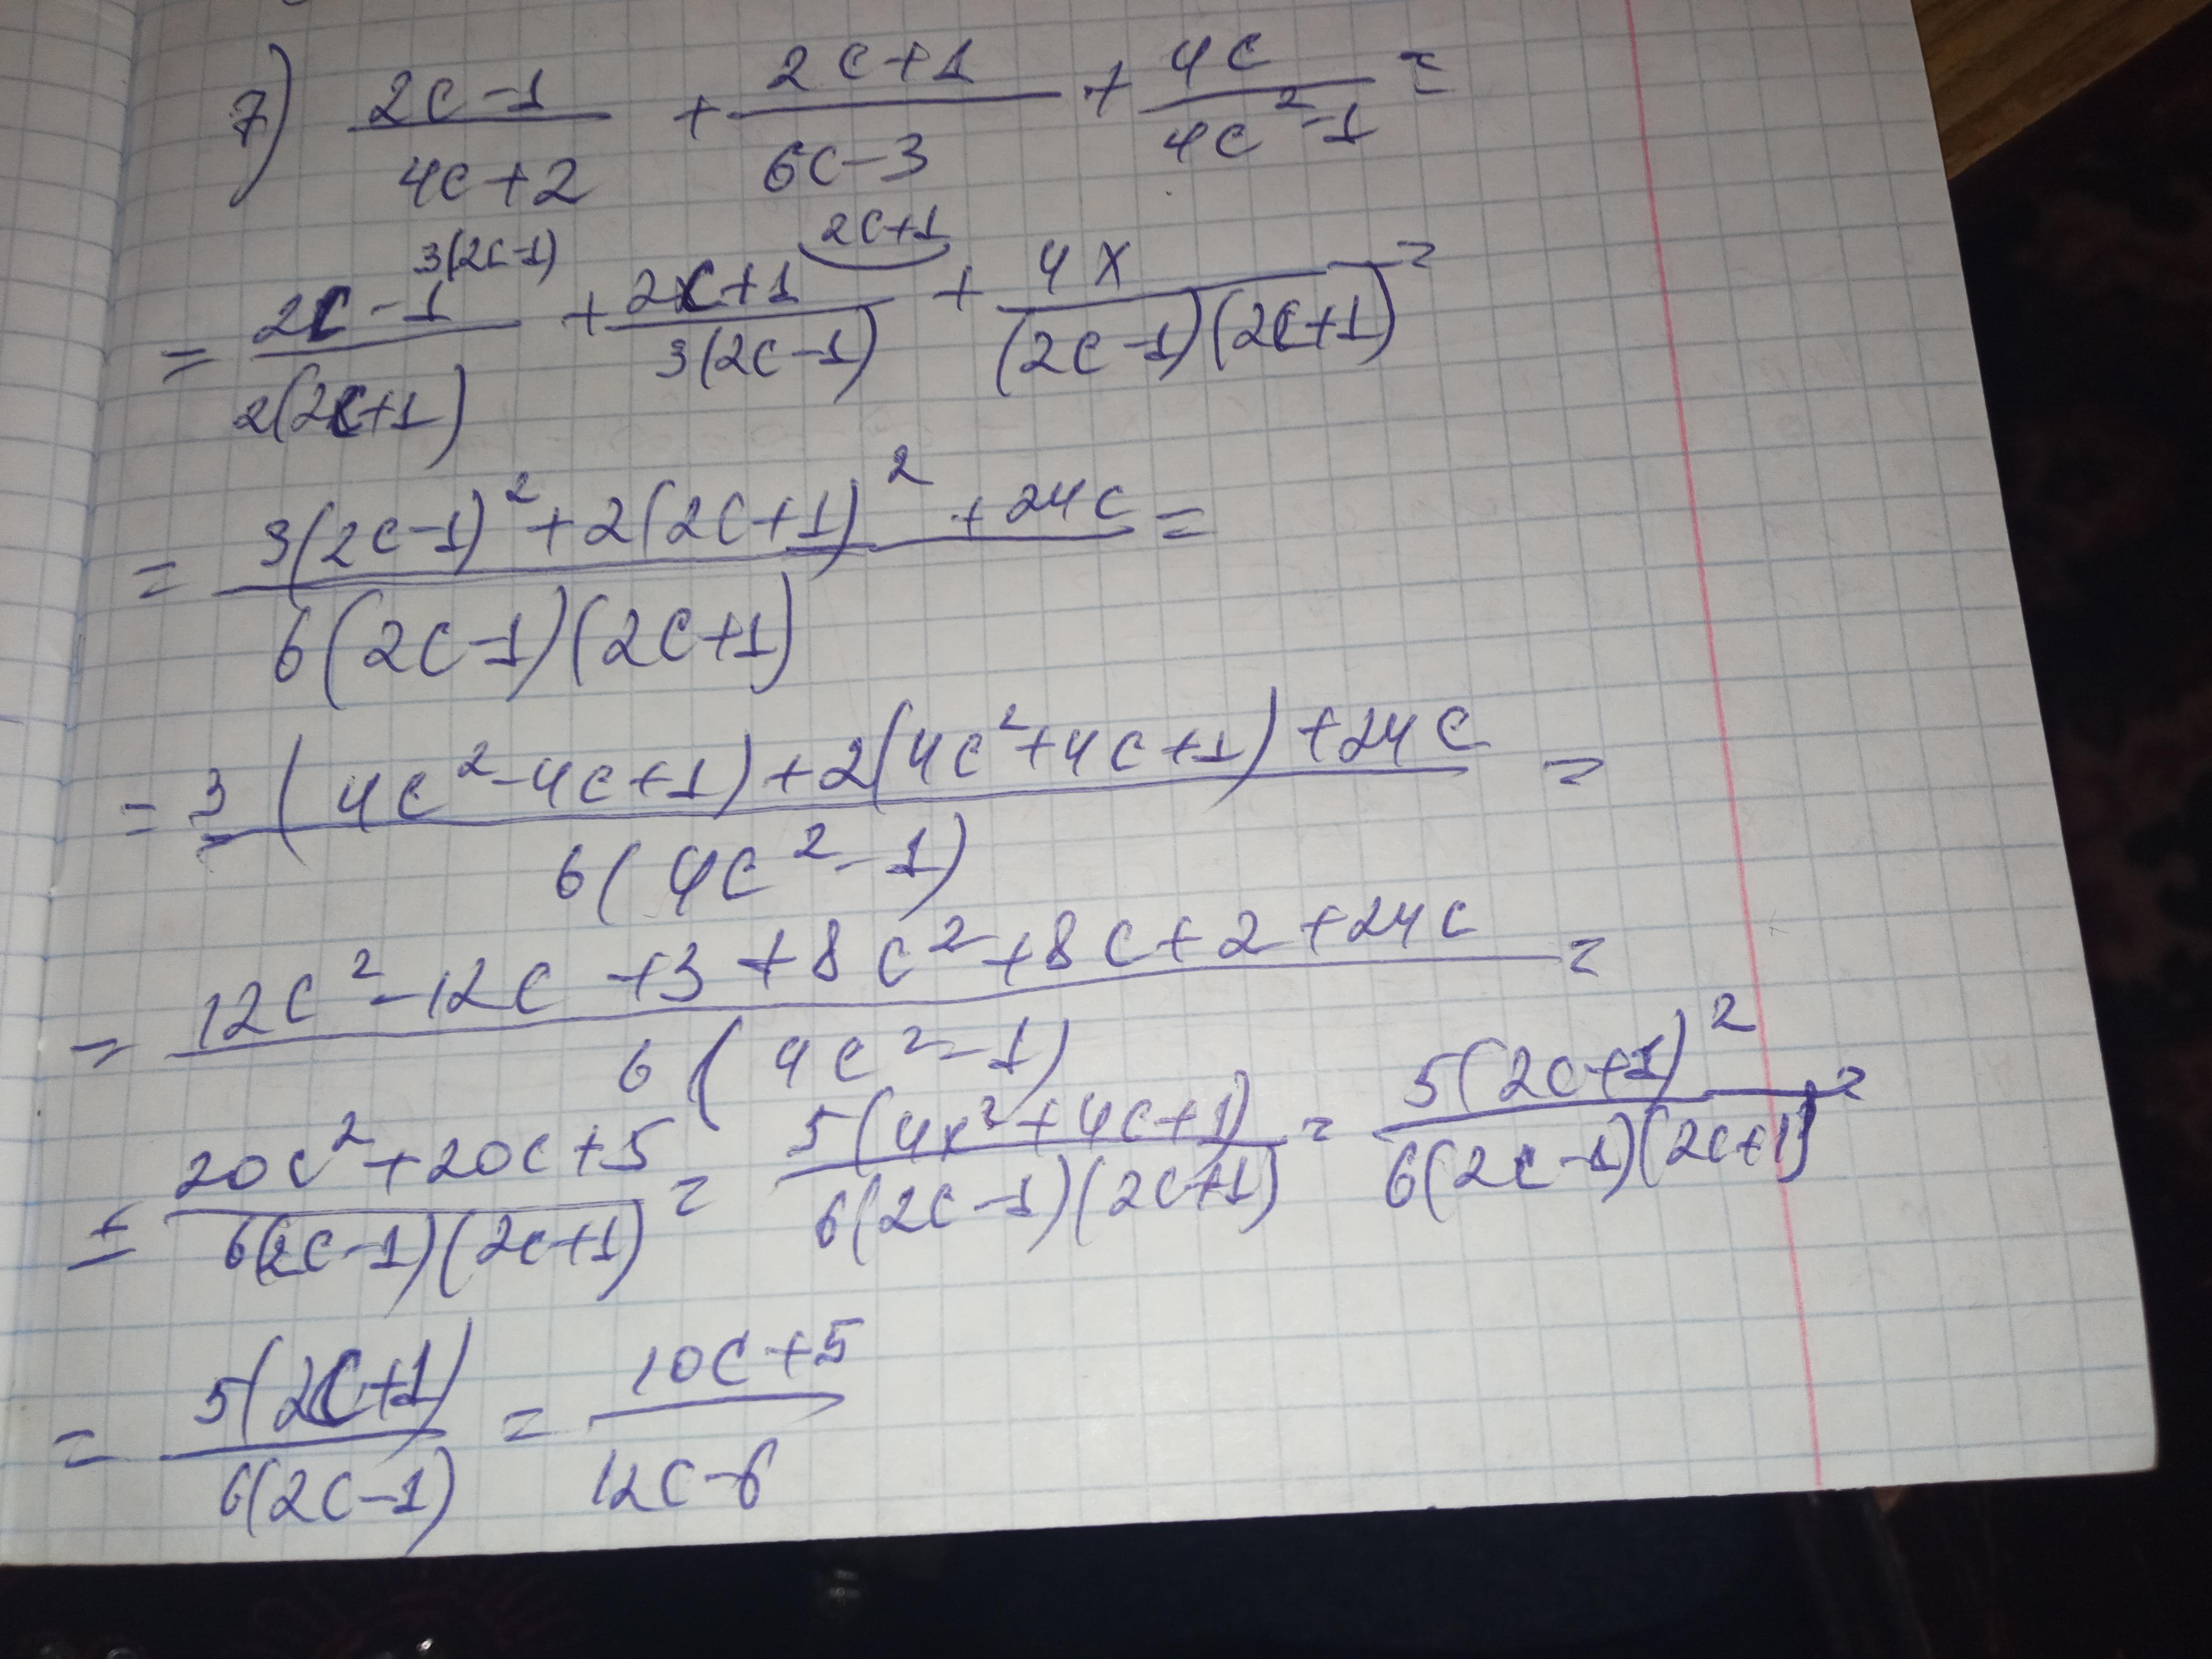 7) (2c-1)/(4c+2) + (2c+1)/(6c-3) + 4c/(4c²-1) =
= (2c-1)/(2(2c+1)) ^3(2c-1) + (2c+1)/(3(2c-1)) ^2c+1 + 4x/((2c-1)(2c+1)) =
= (3(2c-1)²+2(2c+1)²+24c)/(6(2c-1)(2c+1)) =
= (3(4c²-4c+1)+2(4c²+4c+1)+24c)/(6(4c²-1)) =
= (12c²-12c+3+8c²+8c+2+24c)/(6(4c²-1)) =
= (20c²+20c+5)/(6(2c-1)(2c+1)) = 5(4x²+4c+1)/(6(2c-1)(2c+1)) = 5(2c+1)²/(6(2c-1)(2c+1)) =
= 5(2c+1)/(6(2c-1)) = (10c+5)/(12c-6)